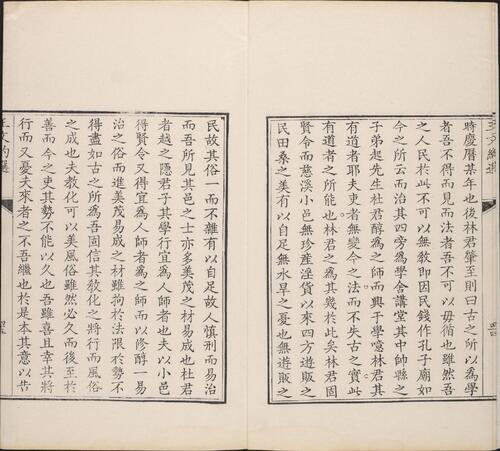 時慶曆某年也後林君肇至則曰古之所以爲學
者吾不得而見而法者吾不可以毋循也雖然吾
之人民於此不可以無教即因民錢作孔子廟如
今之所云而治其四旁爲學舍講堂其中帥縣之
子弟起先生杜君醇爲之師而興于學噫林君其
有道者耶夫吏者無變今之法而不失古之實此
有道者之所能也林君之爲其幾於此矣林君固
賢令而慈溪小邑無珍產淫貨以來四方遊販之
民田桑之美有以自足無水旱之憂也無遊販之
民故其俗一而不雜有以自足故人慎刑而易治
而吾所見其邑之士亦多美茂之材易成也杜君
者越之隱君子其學行宜爲人師者也夫以小邑
得賢令又得宜爲人師者爲之師而以修醇一易
治之俗而進美茂易成之材雖拘於法限於勢不
得盡如古之所爲吾固信其教化之將行而風俗
之成也夫教化可以美風俗雖然必久而後至於
善而今之吏其勢不能以久也吾雖喜且幸其將
行而又憂夫來者之不吾繼也於是本其意以告